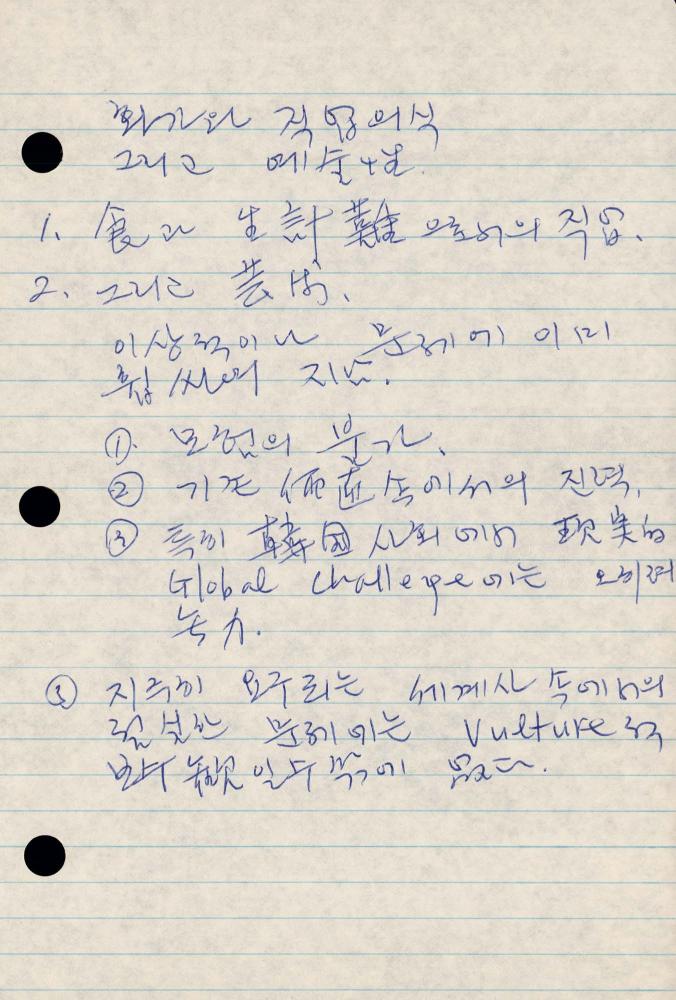 화가와 직업의식
그리고 예술性.
1. 食과 生計難으로서의 직업.
2. 그리고 芸術.
이상적이나 문제에 이미
휩싸여 지남.
① 모험의 불가.
② 기존 価値 속에서의 진력.
③ 특히 韓国 사회에서 現実的
Global challenge에는 오히려
능力.
③ 지극히 요구되는 세계사 속에서의
절실한 문제에는 Vulture적
方観일 수 밖에 없다.